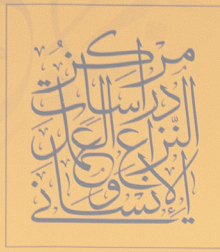 مركز
الدراسات
النزاع
والعمل
الإنساني